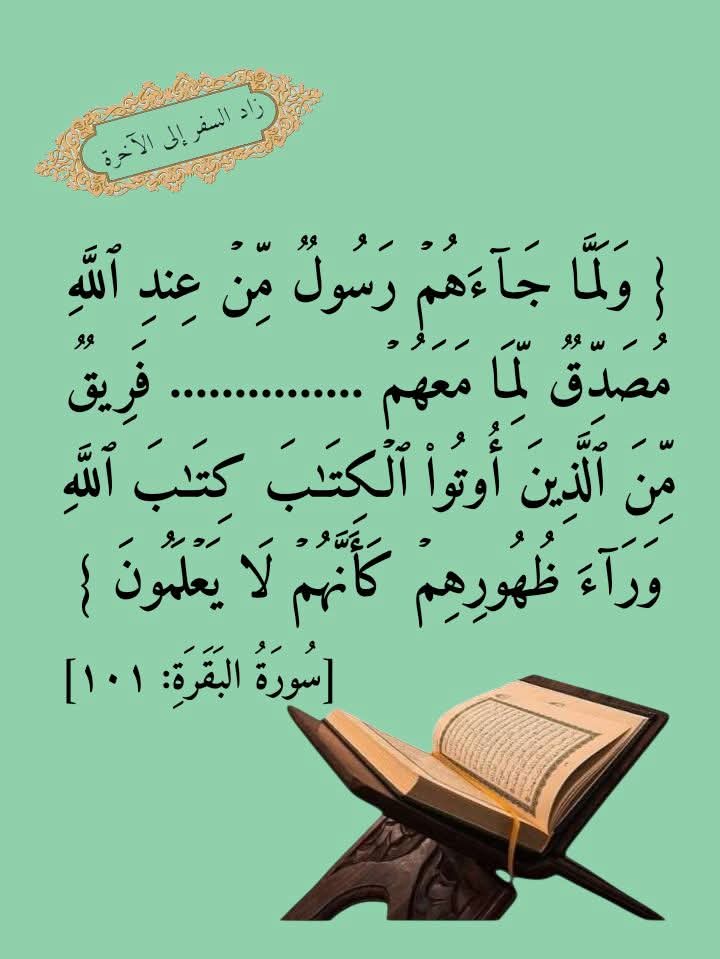 زاد السفر إلى الآخرة
{ وَلَمَّا جَآءَهُمۡ رَسُولٌ مِّنۡ عِندِ ٱللَّهِ
مُصَدِّقٌ لِّمَا مَعَهُمۡ ............... فَرِيقٌ
مِّنَ ٱلَّذِينَ أُوتُواْ ٱلۡكِتَٰبَ كِتَٰبَ ٱللَّهِ
وَرَآءَ ظُهُورِهِمۡ كَأَنَّهُمۡ لَا يَعۡلَمُونَ }
[سُورَةُ البَقَرَةِ: ١٠١]